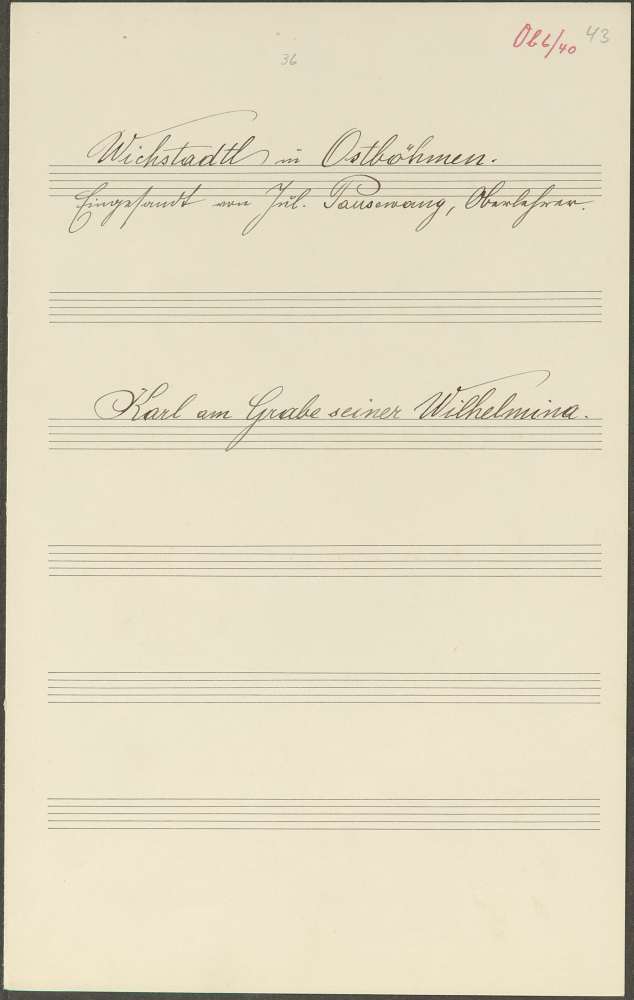 Ob 6/40 43
36
Wichstadtl in Ostböhmen.
Eingesandt von Jul. Pausewang, Oberlehrer.
Karl am Grabe seiner Wilhelmina.